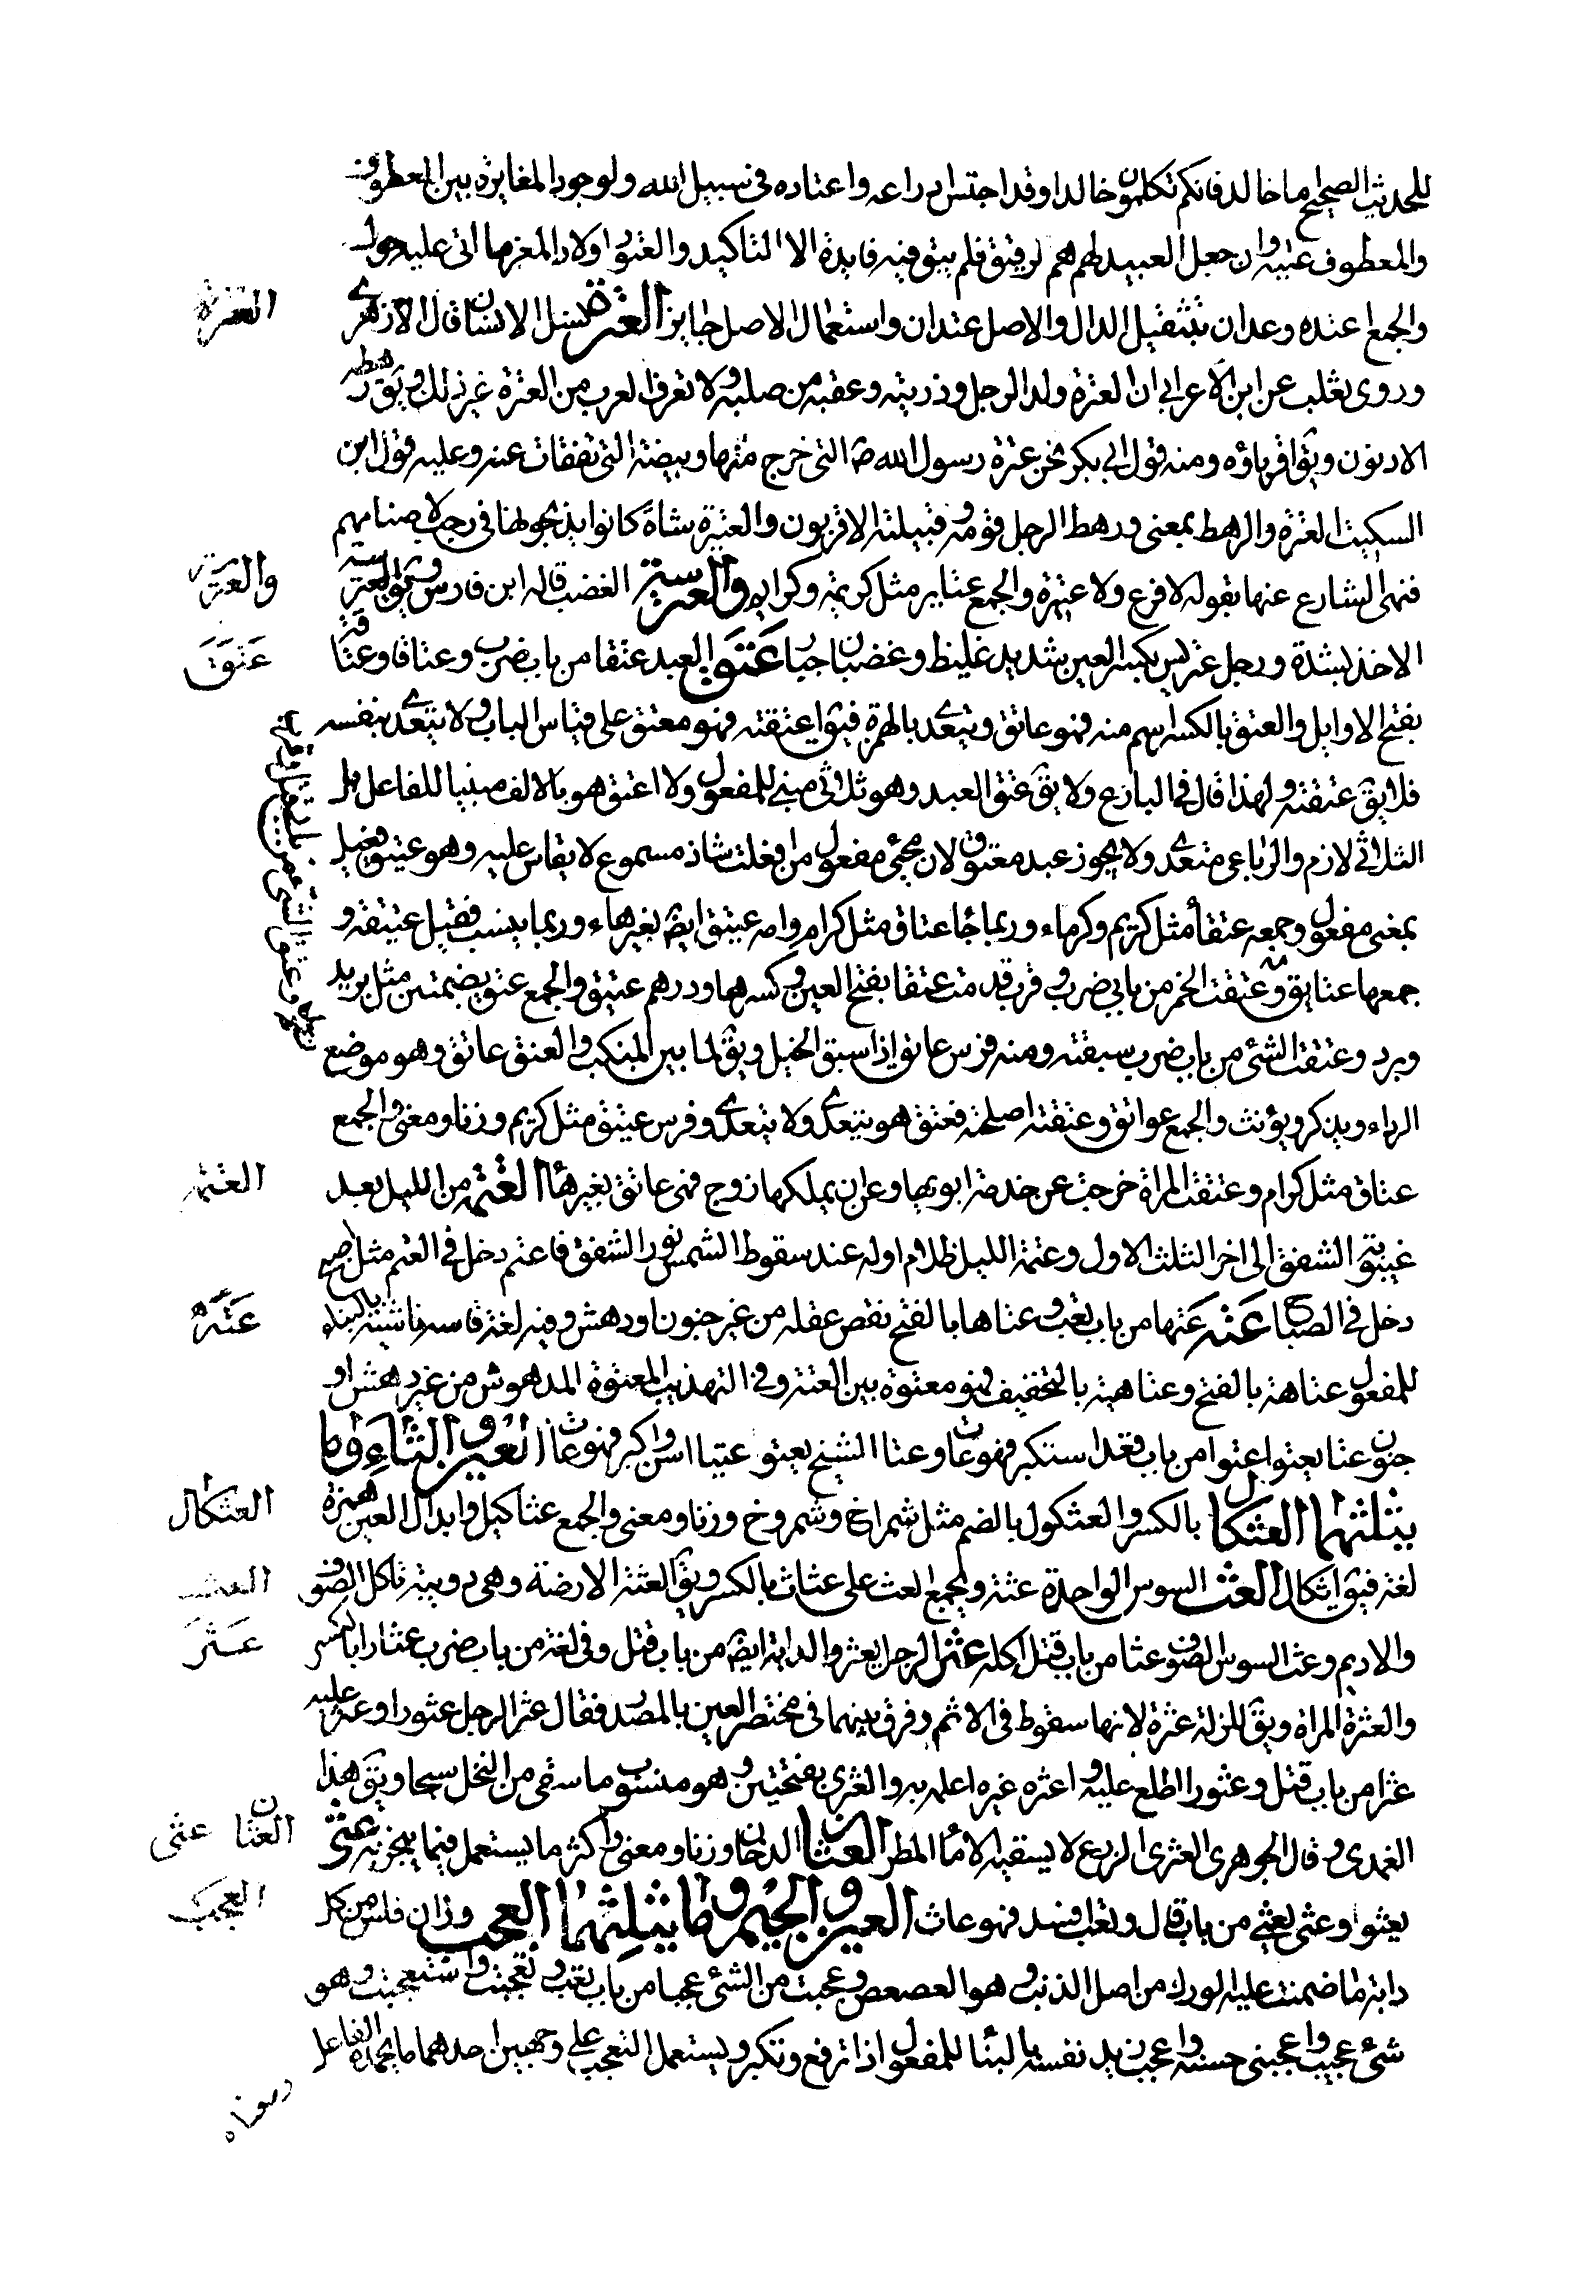 للحديث الصحيح اما خالد فانكم تكلمون خالدا وقد احتبس ادراعه واعتاده في سبيل الله ولوجود المغايرة بين المعطوف
والمعطوف عليه وان جعل العبيد لهم هم لرقيق فلم يبق فيه فايدة الا التاكيد والعتود اولاد المعز ما اتى عليه حول
والجمع اعتده وعدان بتثقيل الدال والاصل عتدان واستعمال الاصل جايز العترة نسل الانسان قال الازهري
العترة
وروى ثعلب عن ابن الاعرابي ان العترة ولد الرجل وذريته وعقبه من صلبه ولا تعرف العرب من العترة غير ذلك ويق رهطه
الادنون ويق اقرباؤه ومنه قول ابي بكر نحن عترة رسول الله ص التي خرج منها وبيضته التي تفقات عنه وعليه قول ابن
السكيت العترة والرهط بمعنى ورهط الرجل قومه وقبيلته الاقربون والعتيرة شاة كانوا يذبحونها في رجب لاصنامهم
فنهى الشارع عنها بقوله لا فرع ولا عتيرة والجمع عتاير مثل كريمة وكرايم والعترسة الغضب قاله ابن فارس ويق العترسة
والعترسة
الاخذ بشدة ورجل عتريس بكسر العين شديد غليظ وغضبان جبار عَتَقَ العبد عتقا من باب ضرب وعتاقا وعتاقة
عَتَقَ
بفتح الاوايل والعتق بالكسر اسم منه فهو عاتق ويتعدى بالهمزة فيق اعتقته فهو معتق على قياس الباب ولا يتعدى بنفسه
فلا يق عتقته ولهذا قال في البارع ولا يق عتق العبد وهو ثلاثي مبني للمفعول ولا اعتق هو بالالف مبنيا للفاعل بل
الثلاثي لازم والرباعي متعد ولا يجوز عبد معتوق لان مجئ مفعول من افعلت شاذ مسموع لا يقاس عليه وهو عتيق فعيل
بمعنى مفعول وجمعه عتقاء مثل كريم وكرماء وربما جا عتاق مثل كرام وامه عتيق ايضا بغير هاء وربما يثبت فقيل عتيقة و
جمعها عتايق وعتقت الخمر من بابي ضرب وقرب قدمت عتقا بفتح العين وكسرها ودرهم عتيق والجمع عتق بضمتين مثل بريد
وبرد وعتقت الشئ من باب ضرب سبقته ومنه فرس عاتق اذا سبق الخيل ويق لما بين المنكب والعنق عاتق وهو موضع
الرداء ويذكر ويؤنث والجمع عواتق وعتقته اصلحته فعتق هو يتعدى ولا يتعدى وفرس عتيق مثل كريم وزنا ومعنى والجمع
عتاق مثل كرام وعتقت المراة خرجت عن خدمة ابويها وعن ان يملكها زوج فهي عاتق بغير هاء العتمة من الليل بعد
العتمة
غيبوبة الشفق الى اخر الثلث الاول وعتمة الليل ظلام اوله عند سقوط الشمس نور الشفق فاعتم دخل في العتم مثل اصبح
دخل في الصباح عَتِهَ عَتَها من باب تعب وعتاها بالفتح نقص عقله من غير جنون او دهش وفيه لغة فاسد فاشية بالبناء
عَتِهَ
للمفعول عتاهة بالفتح وعتاهية بالتخفيف فهو معتوه بين العته وفي التهذيب المعتوه المدهوش من غير دهش او
جنون عتا يعتوا عتوا من باب قعد استكبر فهو عات وعتا الشيخ يعتو عتيا اسن وكبر فهو عات العين والثاء وما
يثلثهما العثكال بالكسر والعثكول بالضم مثل شمراخ وشمروخ وزنا ومعنى والجمع عثاكيل وابدال العين همزة
العثكال
لغة فيق اثكال العث السوس الواحدة عثة ويجمع العث على عثاث بالكسر ويق العثة الارضة وهي دويبة تاكل الصوف
العث
والاديم وعث السوس الصوف عثا من باب قتل اكله عثر الرجل يعثر والدابة ايضا من باب قتل وفي لغة من باب ضرب عثارا بالكسر
عَثَرَ
والعثرة المراة ويق للزلة عثرة لانها سقوط في الاثم وفرق بينهما في مختصر العين بالمصدر فقال عثر الرجل عثورا وعثر عليه
عثرا من باب قتل وعثورا اطلع عليه واعثره غيره اعلمه به والعثري بفتحتين وهو منسوب ما سقى من النخل سيحا ويق هذا
العذي وقال الجوهري العثري الزرع لا يسقيه الا ماء المطر العثان الدخان وزنا ومعنى واكثر ما يستعمل فيما يبخر به عثى
العثان عثى
يعثوا وعثى يعثي من باب قال وتعب فسد فهو عاث العين والجيم وما يثلثهما العجب وزان فلس من كل
العجب
دابة ما ضمت عليه الورك من اصل الذنب وهو العصعص وعجبت من الشئ عجبا من باب تعب وتعجبت واستعجبت وهو
شئ عجيب واعجبني حسنه واعجب زيد نفسه بالبناء للمفعول اذا ترفع وتكبر ويستعمل التعجب على وجهين احدهما ما يحمده الفاعل